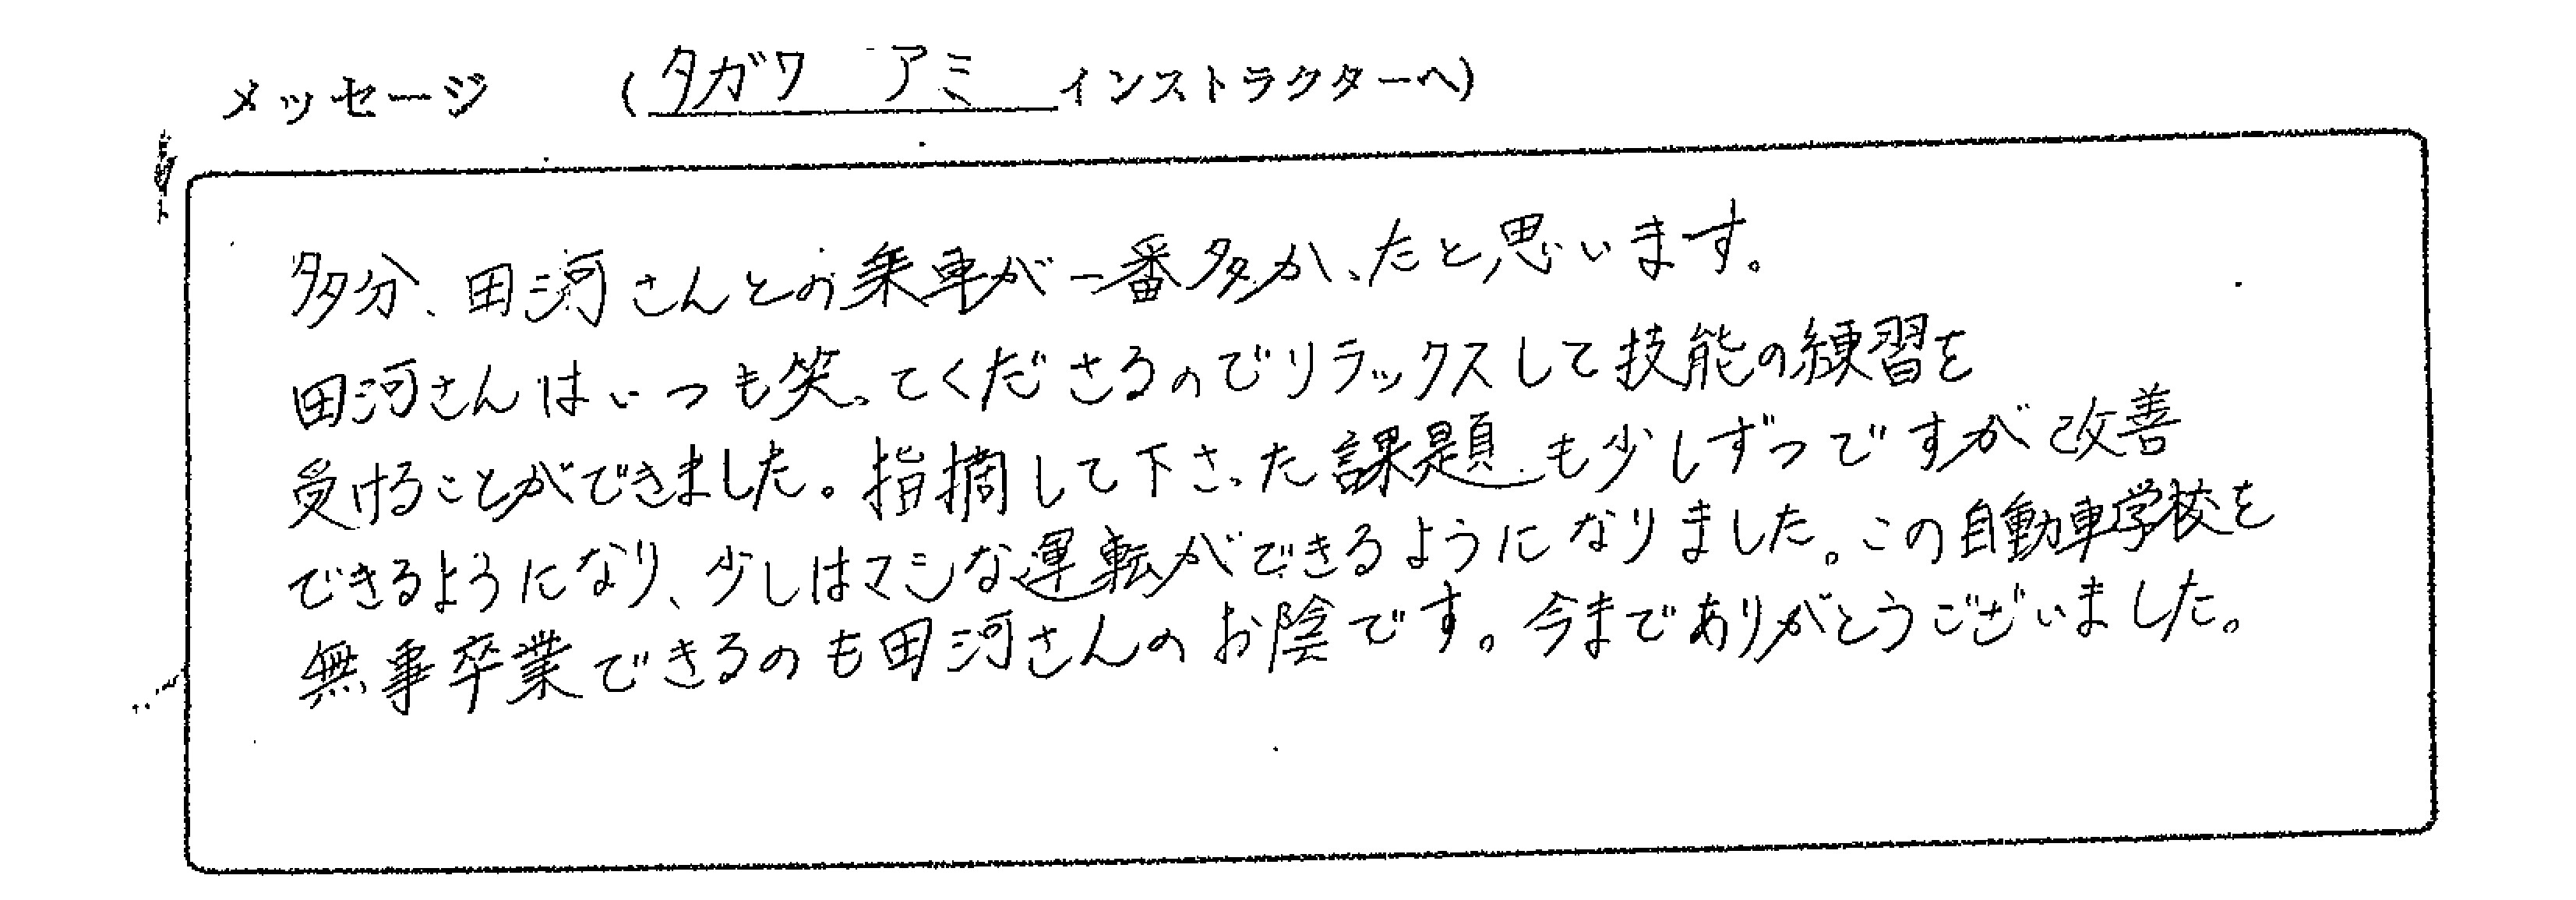 メッセージ （タガワ アミ インストラクターへ）
多分、田河さんとの乗車が一番多かったと思います。
田河さんはいつも笑ってくださるのでリラックスして技能の練習を
受けることができました。指摘して下さった課題も少しずつですが改善
できるようになり、少しはマシな運転ができるようになりました。この自動車学校を
無事卒業できるのも田河さんのお陰です。今までありがとうございました。